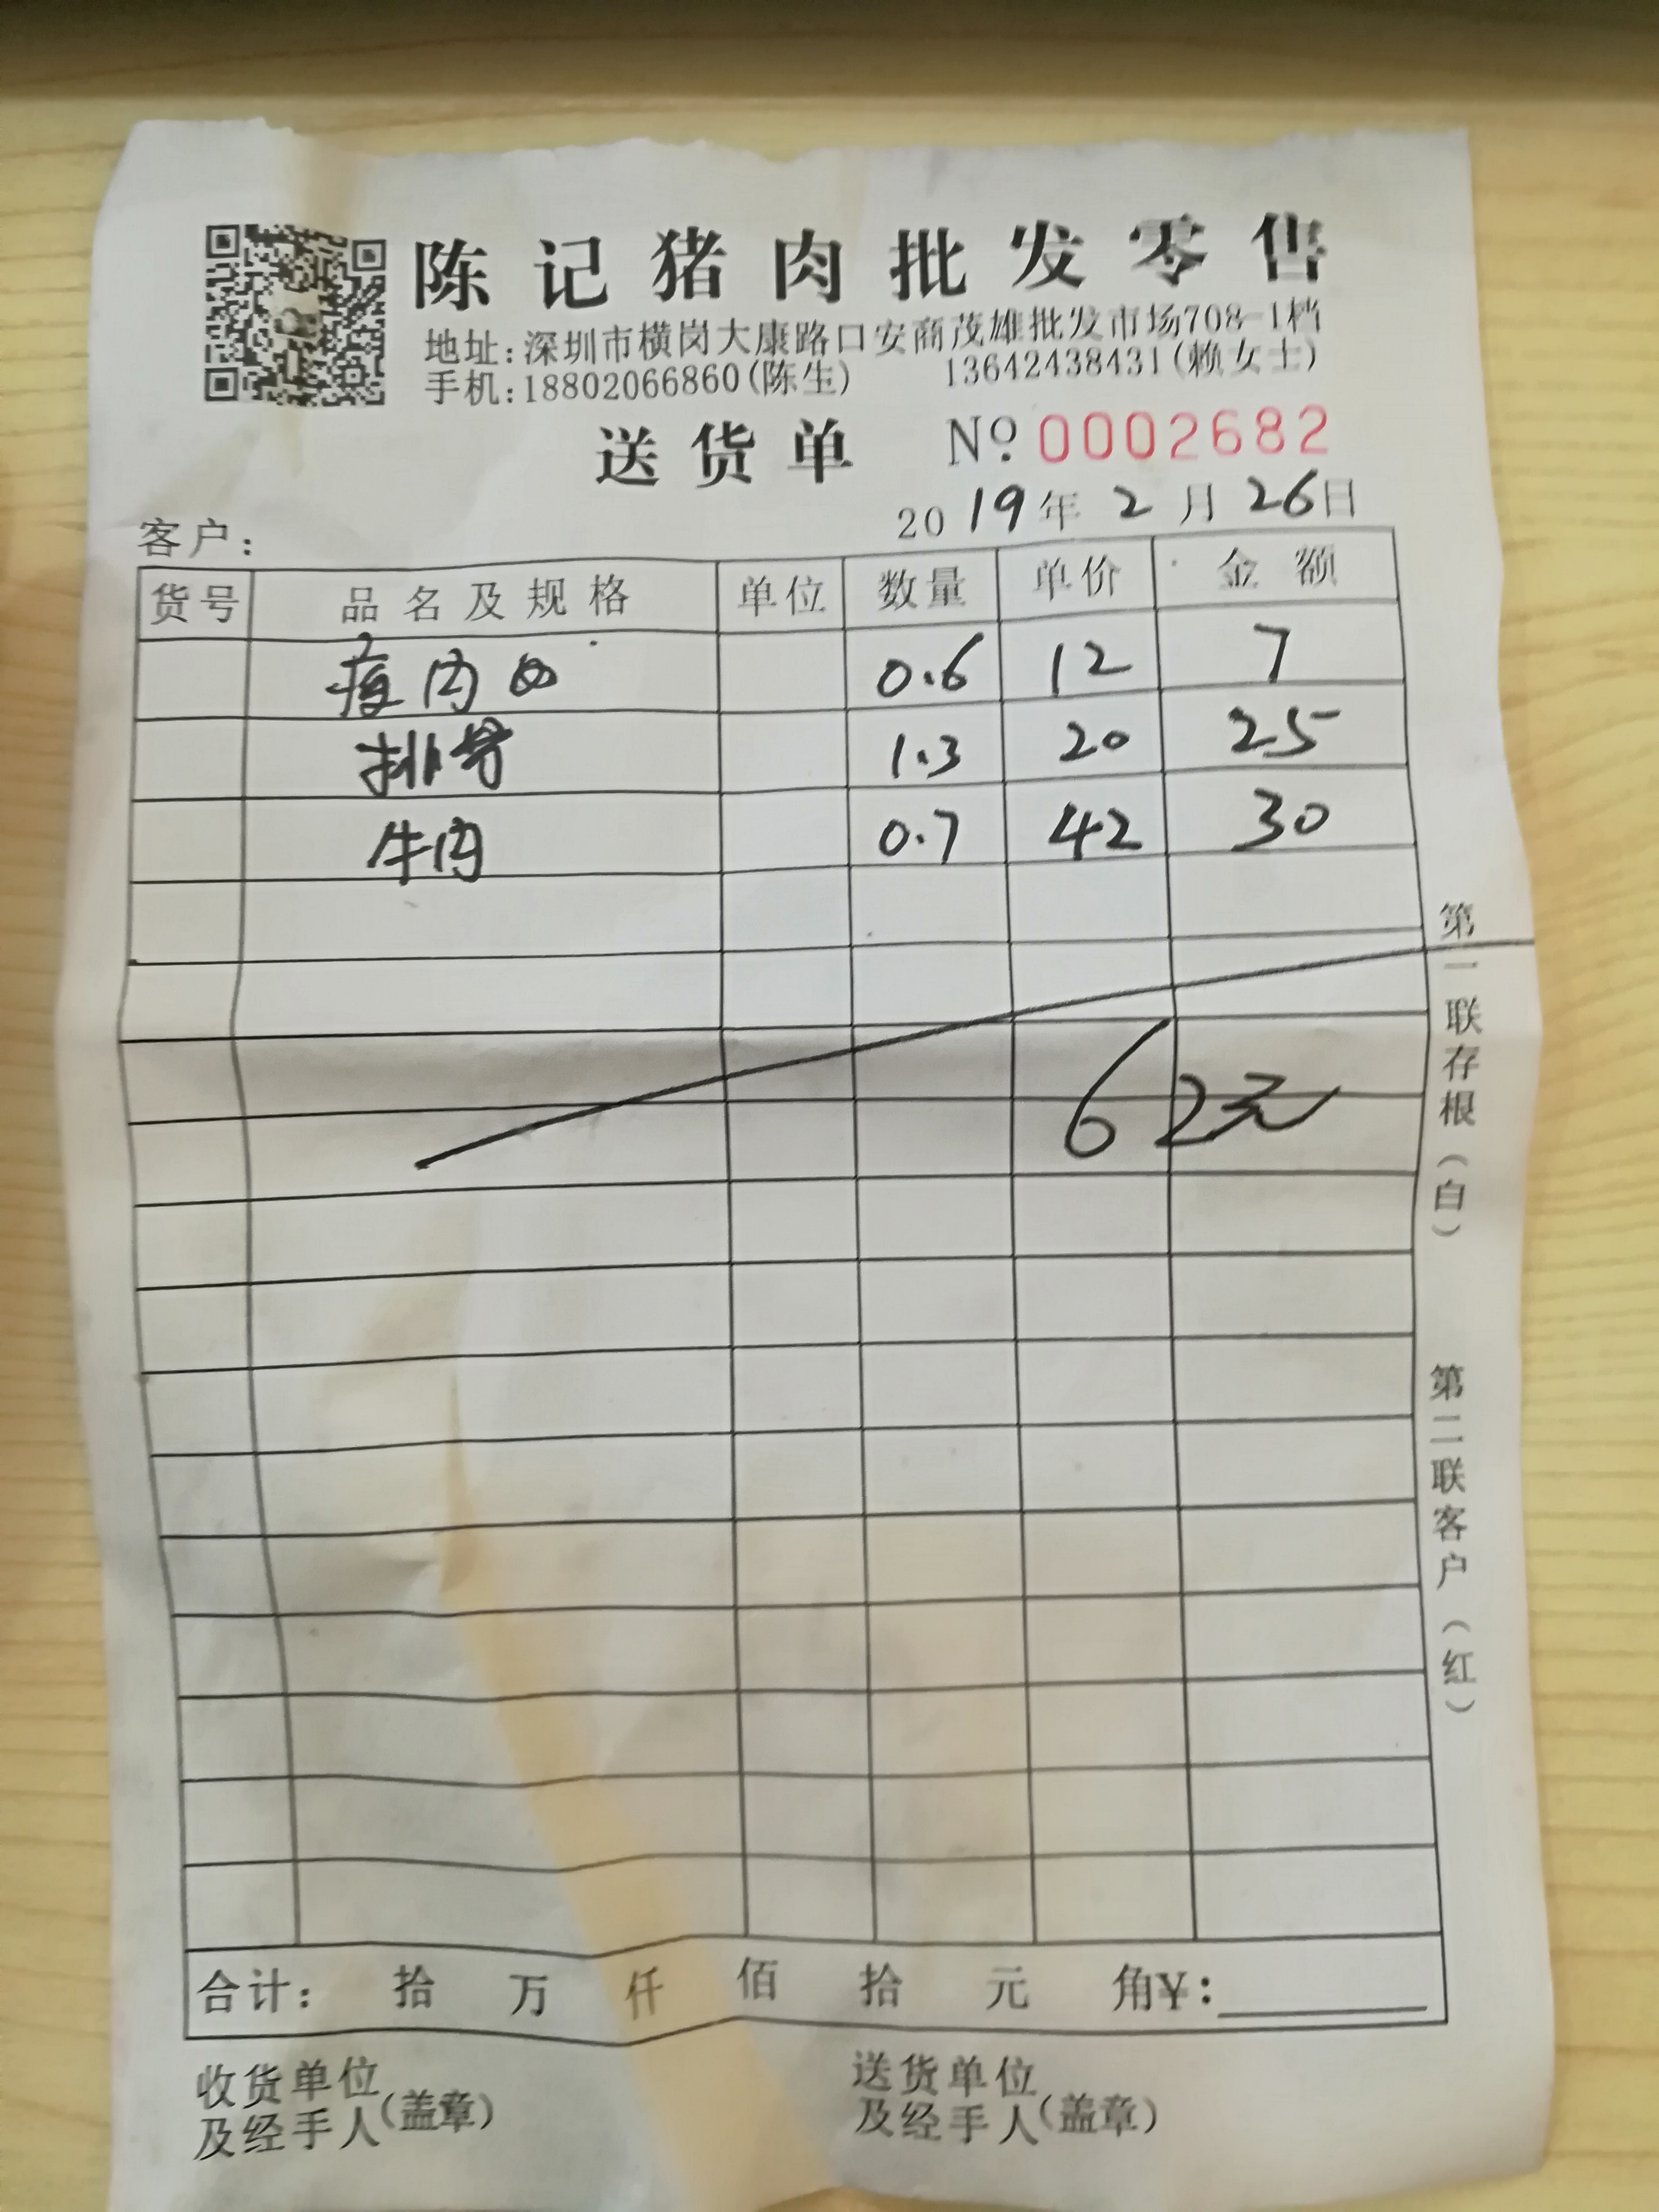 陈记猪肉批发零售
地址:深圳市横岗大康路口安商茂雄批发市场708-1档
手机:18802066860(陈生) 13642438431(赖女士)
送货单 Nº 0002682
2019年2月26日
客户:
货号 品名及规格 单位 数量 单价 金额
瘦肉 0.6 12 7
排骨 1.3 20 25
牛肉 0.7 42 30
62元
第一联存根(白)
第二联客户(红)
合计: 拾 万 仟 佰 拾 元 角¥:
收货单位 送货单位
及经手人(盖章) 及经手人(盖章)